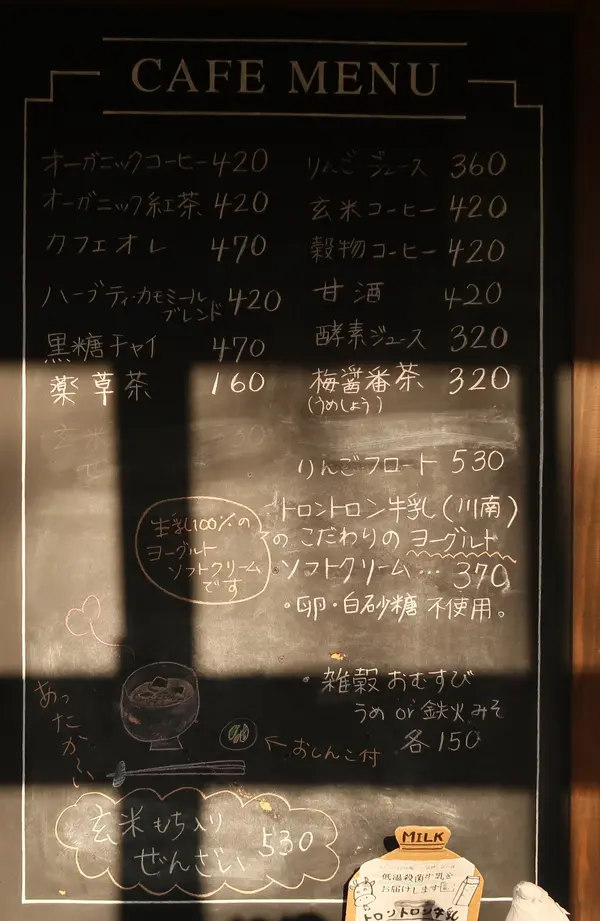 CAFE MENU
オーガニックコーヒー 420
オーガニック紅茶 420
カフェオレ 470
ハーブティ・カモミール
ブレンド 420
黒糖チャイ 470
薬草茶 160
玄米
ぜ 530
りんごジュース 360
玄米コーヒー 420
穀物コーヒー 420
甘酒 420
酵素ジュース 320
梅醤番茶 320
(うめしょう)
りんごフロート 530
トロントロン牛乳(川南)
のこだわりのヨーグルト
ソフトクリーム… 370
・卵・白砂糖不使用。
生乳100%の
ヨーグルト
ソフトクリーム
です
・雑穀おむすび
うめ or 鉄火みそ
各150
あったか〜い
←おしんこ付
玄米もち入り
ぜんざい 530
MILK
低温殺菌牛乳を
お届けします
トロントロン牛乳